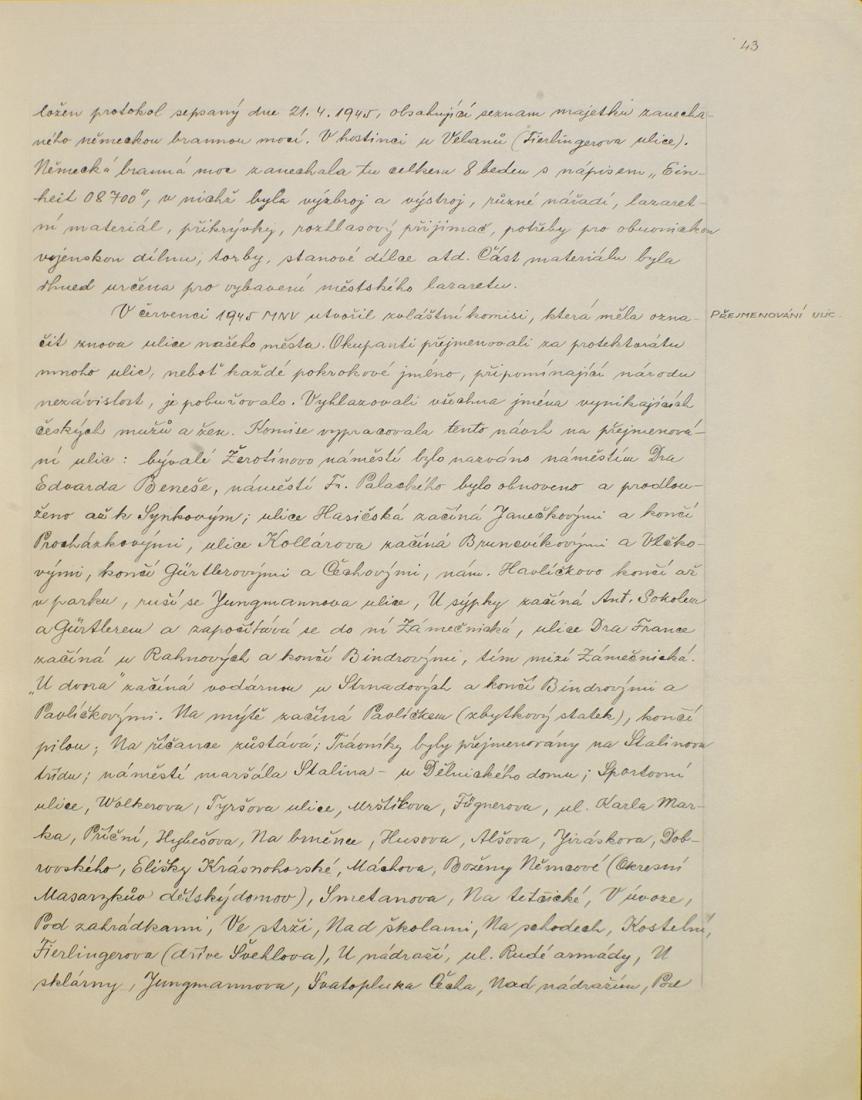 43
ložen protokol sepsaný dne 21. 4. 1945, obsahující seznam majetku zanecha-
ného německou brannou mocí. V hostinci u Velanů (Fierlingerova ulice).
Německá branná moc zanechala tu celkem 8 beden s nápisem „Ein-
heit 08700", v nichž byla výzbroj a výstroj, různé nářadí, lazaret-
ní materiál, přikrývky, rozhlasový přijímač, potřeby pro obuvnickou
vojenskou dílnu, torby, stanové dílce atd. Část materiálu byla
ihned určena pro vybavení městského lazaretu.
V červenci 1945 MNV utvořil zvláštní komisi, která měla ozna-
PŘEJMENOVÁNÍ ULIC.
čit znova ulice našeho města. Okupanti přejmenovali za protektorátu
mnoho ulic, neboť každé pokrokové jméno, připomínající národu
nezávislost, je pobuřovalo. Vyhlazovali všechna jména vynikajících
českých mužů a žen. Komise vypracovala tento návrh na přejmenová-
ní ulic: bývalé Žerotínovo náměstí bylo nazváno náměstím Dra
Edvarda Beneše, náměstí Fr. Palackého bylo obnoveno a prodlou-
ženo až k Synkovým; ulice Hasičská začíná Janečkovými a končí
Procházkovými, ulice Kollárova začíná Bruncvíkovými a Vlčko-
vými, končí Gürtlerovými a Čechovými, nám. Havlíčkovo končí až
v parku, ruší se Jungmannova ulice, U sýpky začíná Ant. Sokolem
a Gürtlerem a započítává se do ní Zámečnická, ulice Dra France
začíná u Rahnových a končí Bindrovými, tím mizí Zámečnická.
„U dvora" začíná vodárnou u Strnadových a končí Bindrovými a
Pavlíčkovými. Na mýtě začíná Pavlíčkem (zbytkový statek), končí
pilou; Na říčance zůstává; Trávníky byly přejmenovány na Stalinovu
třídu; náměstí maršála Stalina - u Dělnického domu; Sportovní
ulice, Wolkerova, Tyršova ulice, Mrštíkova, Fügnerova, ul. Karla Mar-
ka, Příční, Hybešova, Na brněnce, Husova, Alšova, Jiráskova, Dob-
rovského, Elišky Krásnohorské, Máchova, Boženy Němcové (Okresní
Masarykův dětský domov), Smetanova, Na tetčické, V úvoze,
Pod zahrádkami, Ve strži, Nad školami, Na schodech, Kostelní,
Fierlingerova (dříve Švehlova), U nádraží, ul. Rudé armády, U
sklárny, Jungmannova, Svatopluka Čecha, Nad nádražím, Pod